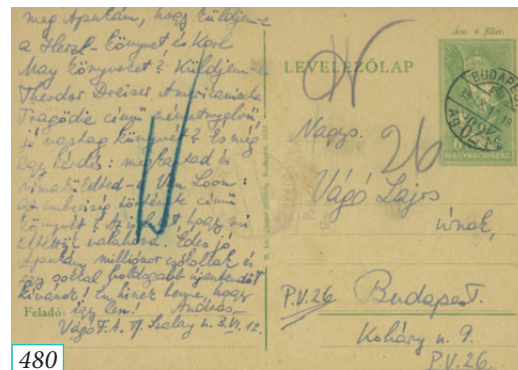 meg Apukám, hogy küldjem-e
a Herzl-könyvet és Karl
May könyveket? Küldjem-e
Theodor Dreiser Amerikanische
Tragödie című németnyelvű,
jó vastag könyvét? És még
egy kérdés: megkaptad és
Van Loon:
az emberiség története című
könyvét? hogy mi
valahová. Édes jó
Apukám, milliószor csókollak és
egy sokkal boldogabb újesztendőt
kívánok! hinek lenne, hogy
Feladó: így len! András
Vágó F. A. Szalay u. 3. VI. 12.
Ára 6 fillér.
LEVELEZŐLAP
BUDAPEST
MAGYARORSZÁG
Nagys.
26
Vágó Lajos
úrnak,
P.V.26. Budapest.
Koháry u. 9.
P.V.26.
480